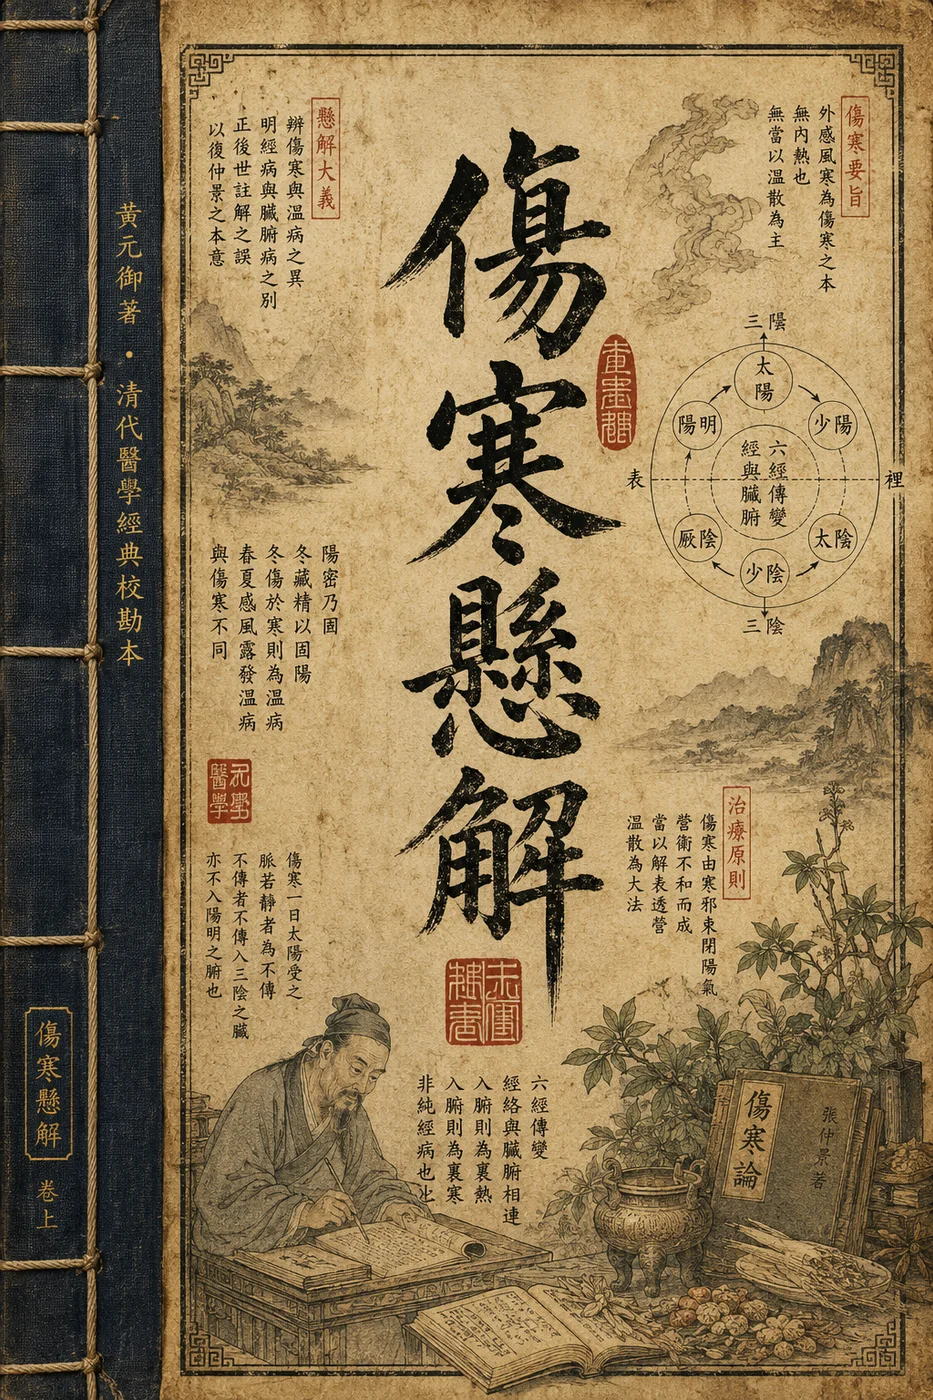 傷寒懸解
黃元御著・清代醫學經典校勘本
傷寒懸解
卷上
傷寒要旨
外感風寒為傷寒之本
無內熱也
無當以溫散為主
懸解大義
辨傷寒與溫病之異
明經病與臟腑病之別
正後世註解之誤
以復仲景之本意
太陽
少陽
陽明
太陰
少陰
厥陰
六經傳變
經與臟腑
表
裡
三陰
陽密乃固
冬藏精以固陽
冬傷於寒則為溫病
春夏感風露發溫病
與傷寒不同
醫學
治療原則
傷寒由寒邪束閉陽氣
營衛不和而成
當以解表透營
溫散為大法
傷寒一日太陽受之
脈若靜者為不傳
不傳者不傳入三陰之臟
亦不入陽明之腑也
六經傳變
經絡與臟腑相連
入腑則為裏熱
入腑則為裏寒
非純經病也
傷寒論
張仲景著